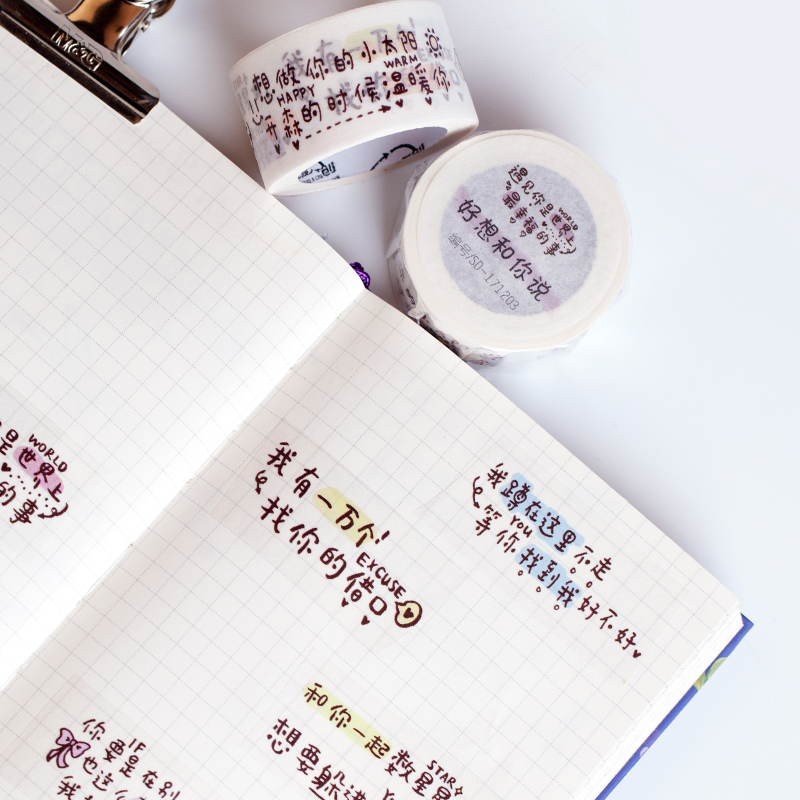 M&G
我有一
想做你的小太阳
WARM
HAPPY
森的时候温暖你
遇见你
WORLD
是世界上
最幸福的事
好想和你说
编号/SD-171203
是
WORLD
世界上
的事
我有一万个!
找你的借口
EXCUSE
我蹲在这里不走
YOU
等你找到我好不好
和你一起数星星
STAR
想要躲进
你
IF
要是在别
也这么
我